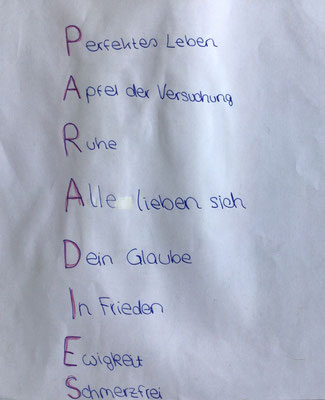 Perfektes Leben
Apfel der Versuchung
Ruhe
Alle lieben sich
Dein Glaube
In Frieden
Ewigkeit
Schmerzfrei